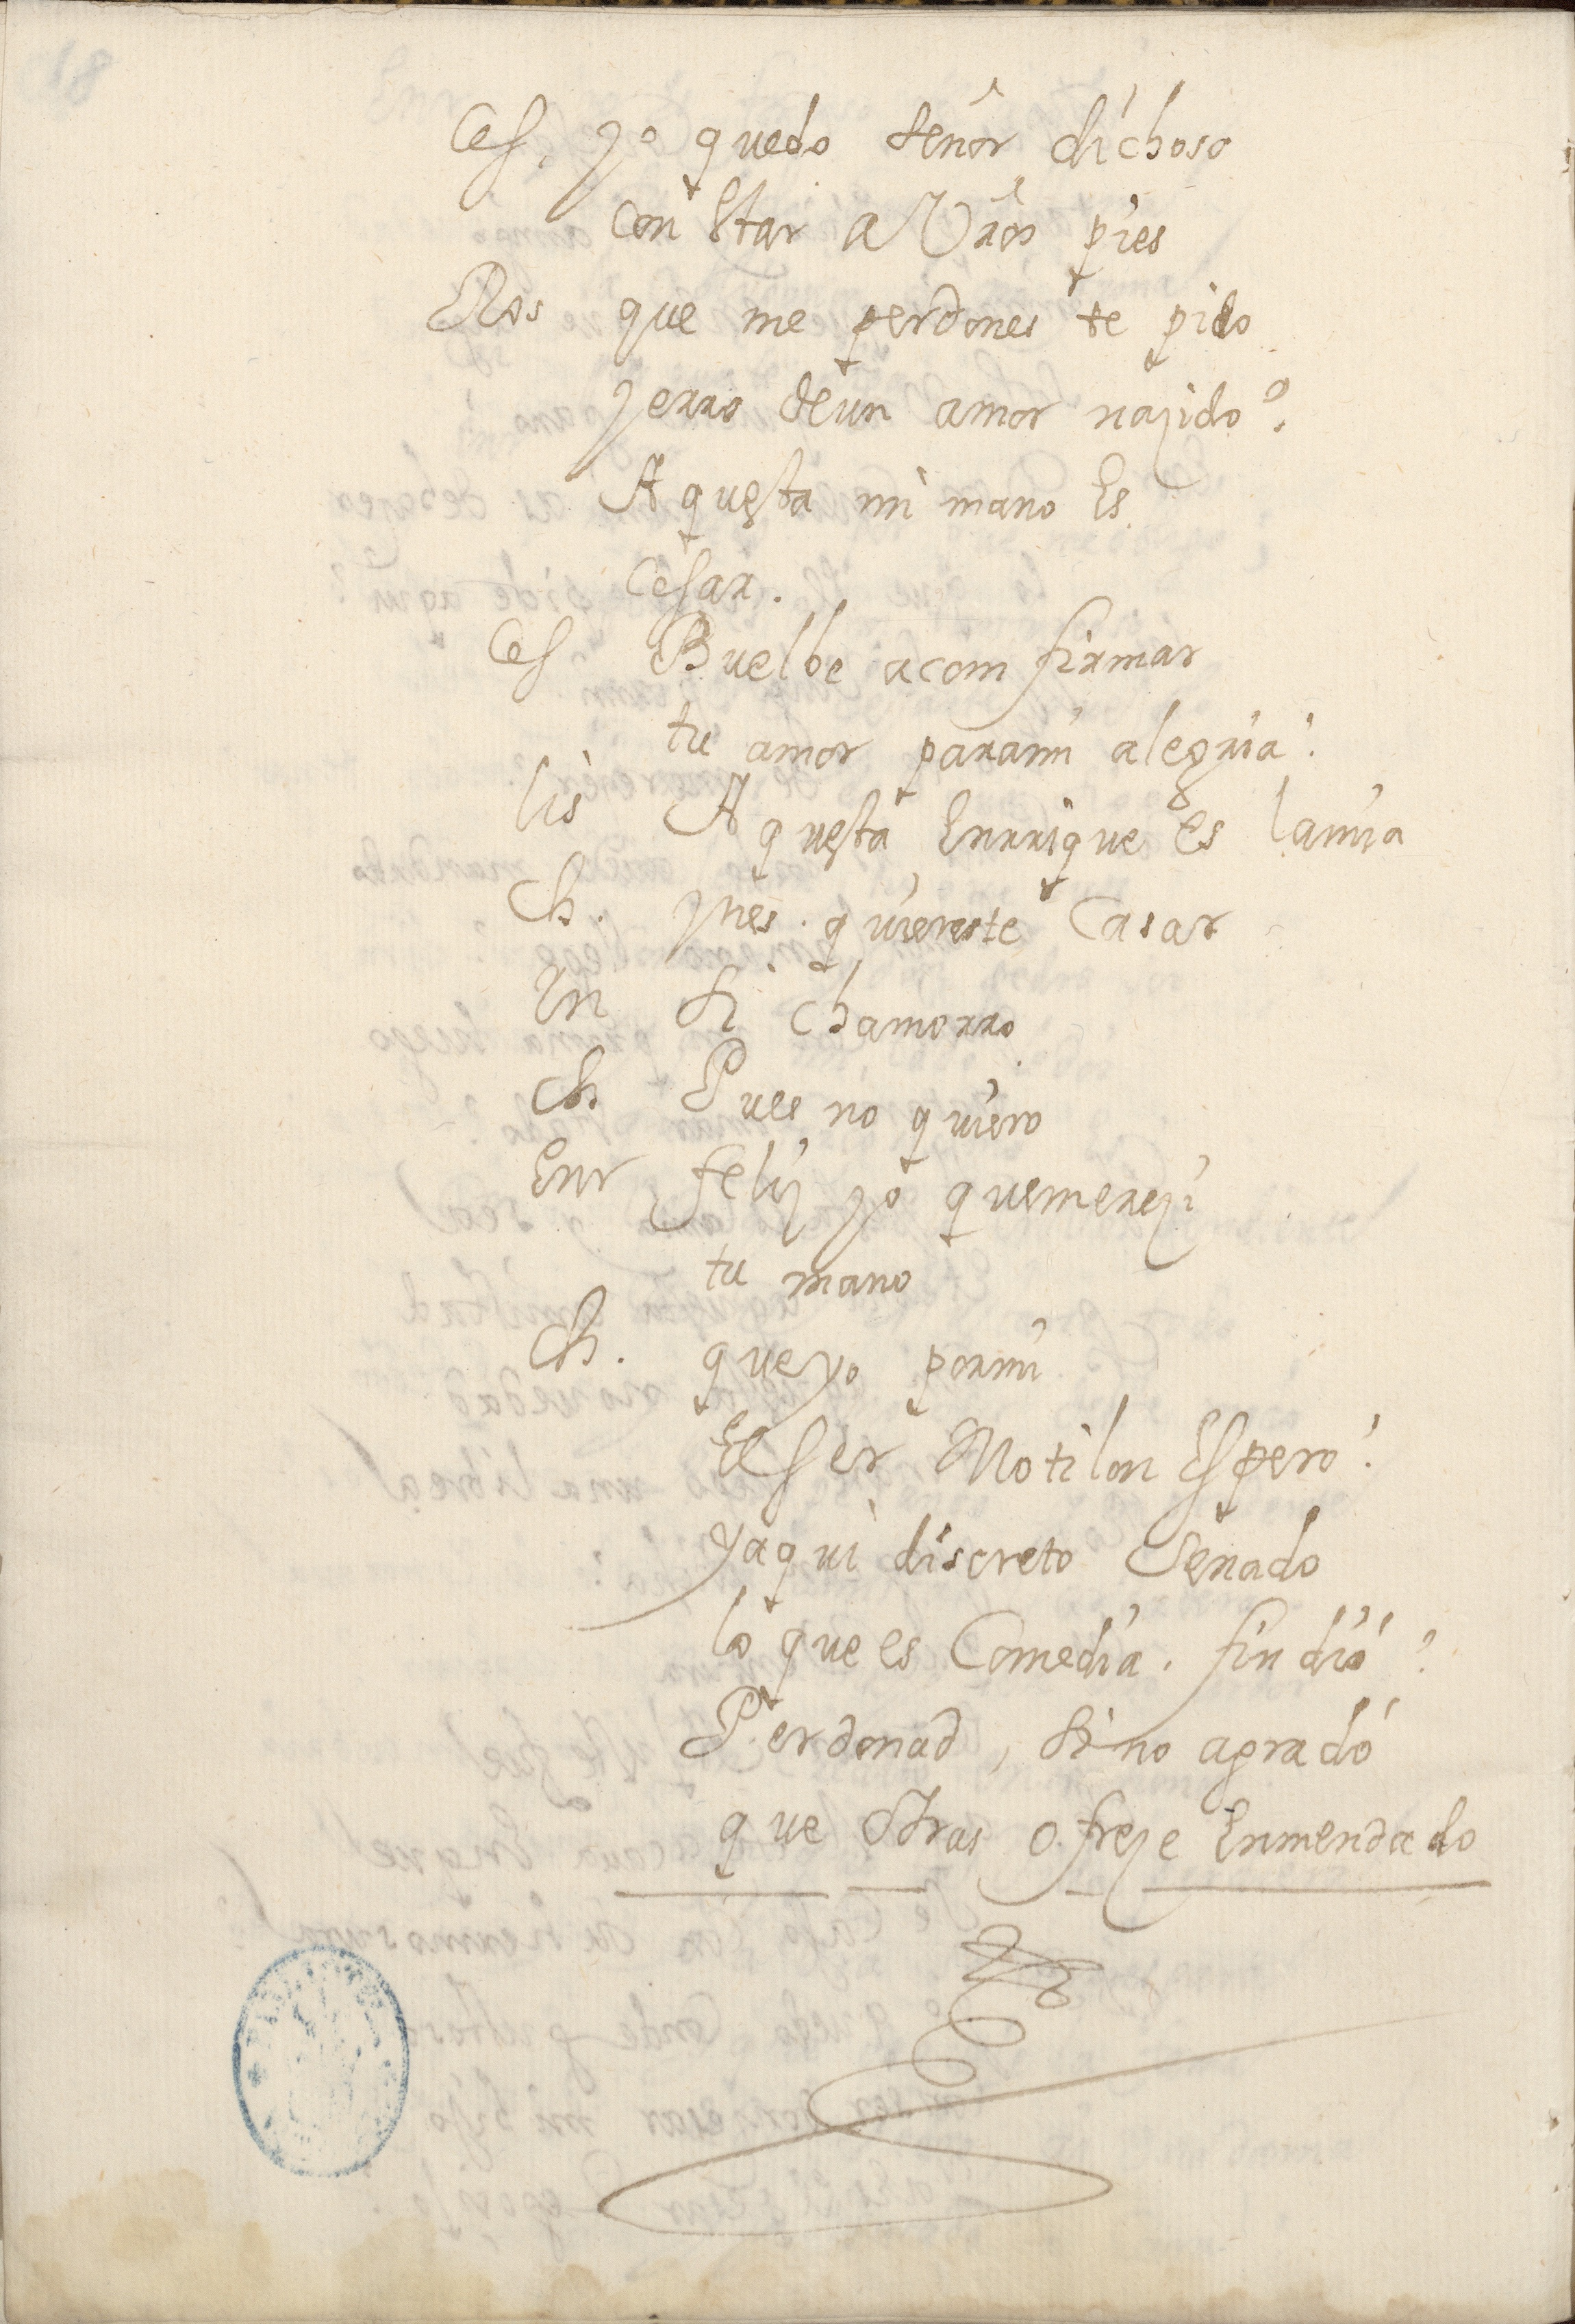 Ces. yo quedo señor dichoso
con Estar a Vrôs pies
Ros que me perdones te pido
yerro deun amor nazido?
Aquesta mi mano Es
Cesar.
Ces Buelbe acomfirmar
tu amor parami alegria.
lis Aquesta Enrrique es lamia
Ch. Ynes. quiereste Casar
Yn Si Chamorro
Ch. Pues no quiero
Enr feliz yo quemerezi
tu mano
Ch. queyo pormi
El ser Motilon Espero.
Yaqui discreto Senado
lo que es Comedia. fin dió?
Perdonad, Sino agradó
que otras ofreze Enmendado